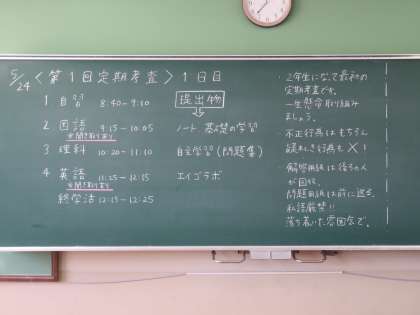 5/24 <第1回定期考査> 1日目
1 自習 8:40-9:10
提出物
2 国語 9:15-10:05 ノート 基礎の学習
※聞き取りあり
3 理科 10:20-11:10 自主学習(問題集)
4 英語 11:25-12:15 エイゴラボ
※聞き取りあり
終学活 12:15-12:25
・2年生になって最初の
定期考査です。
一生懸命取り組み
ましょう。
・不正行為はもちろん
疑わしき行為も×!
・解答用紙は後ろの人
が回収。
問題用紙は前に送る。
私語厳禁!!
落ち着いた雰囲気で。